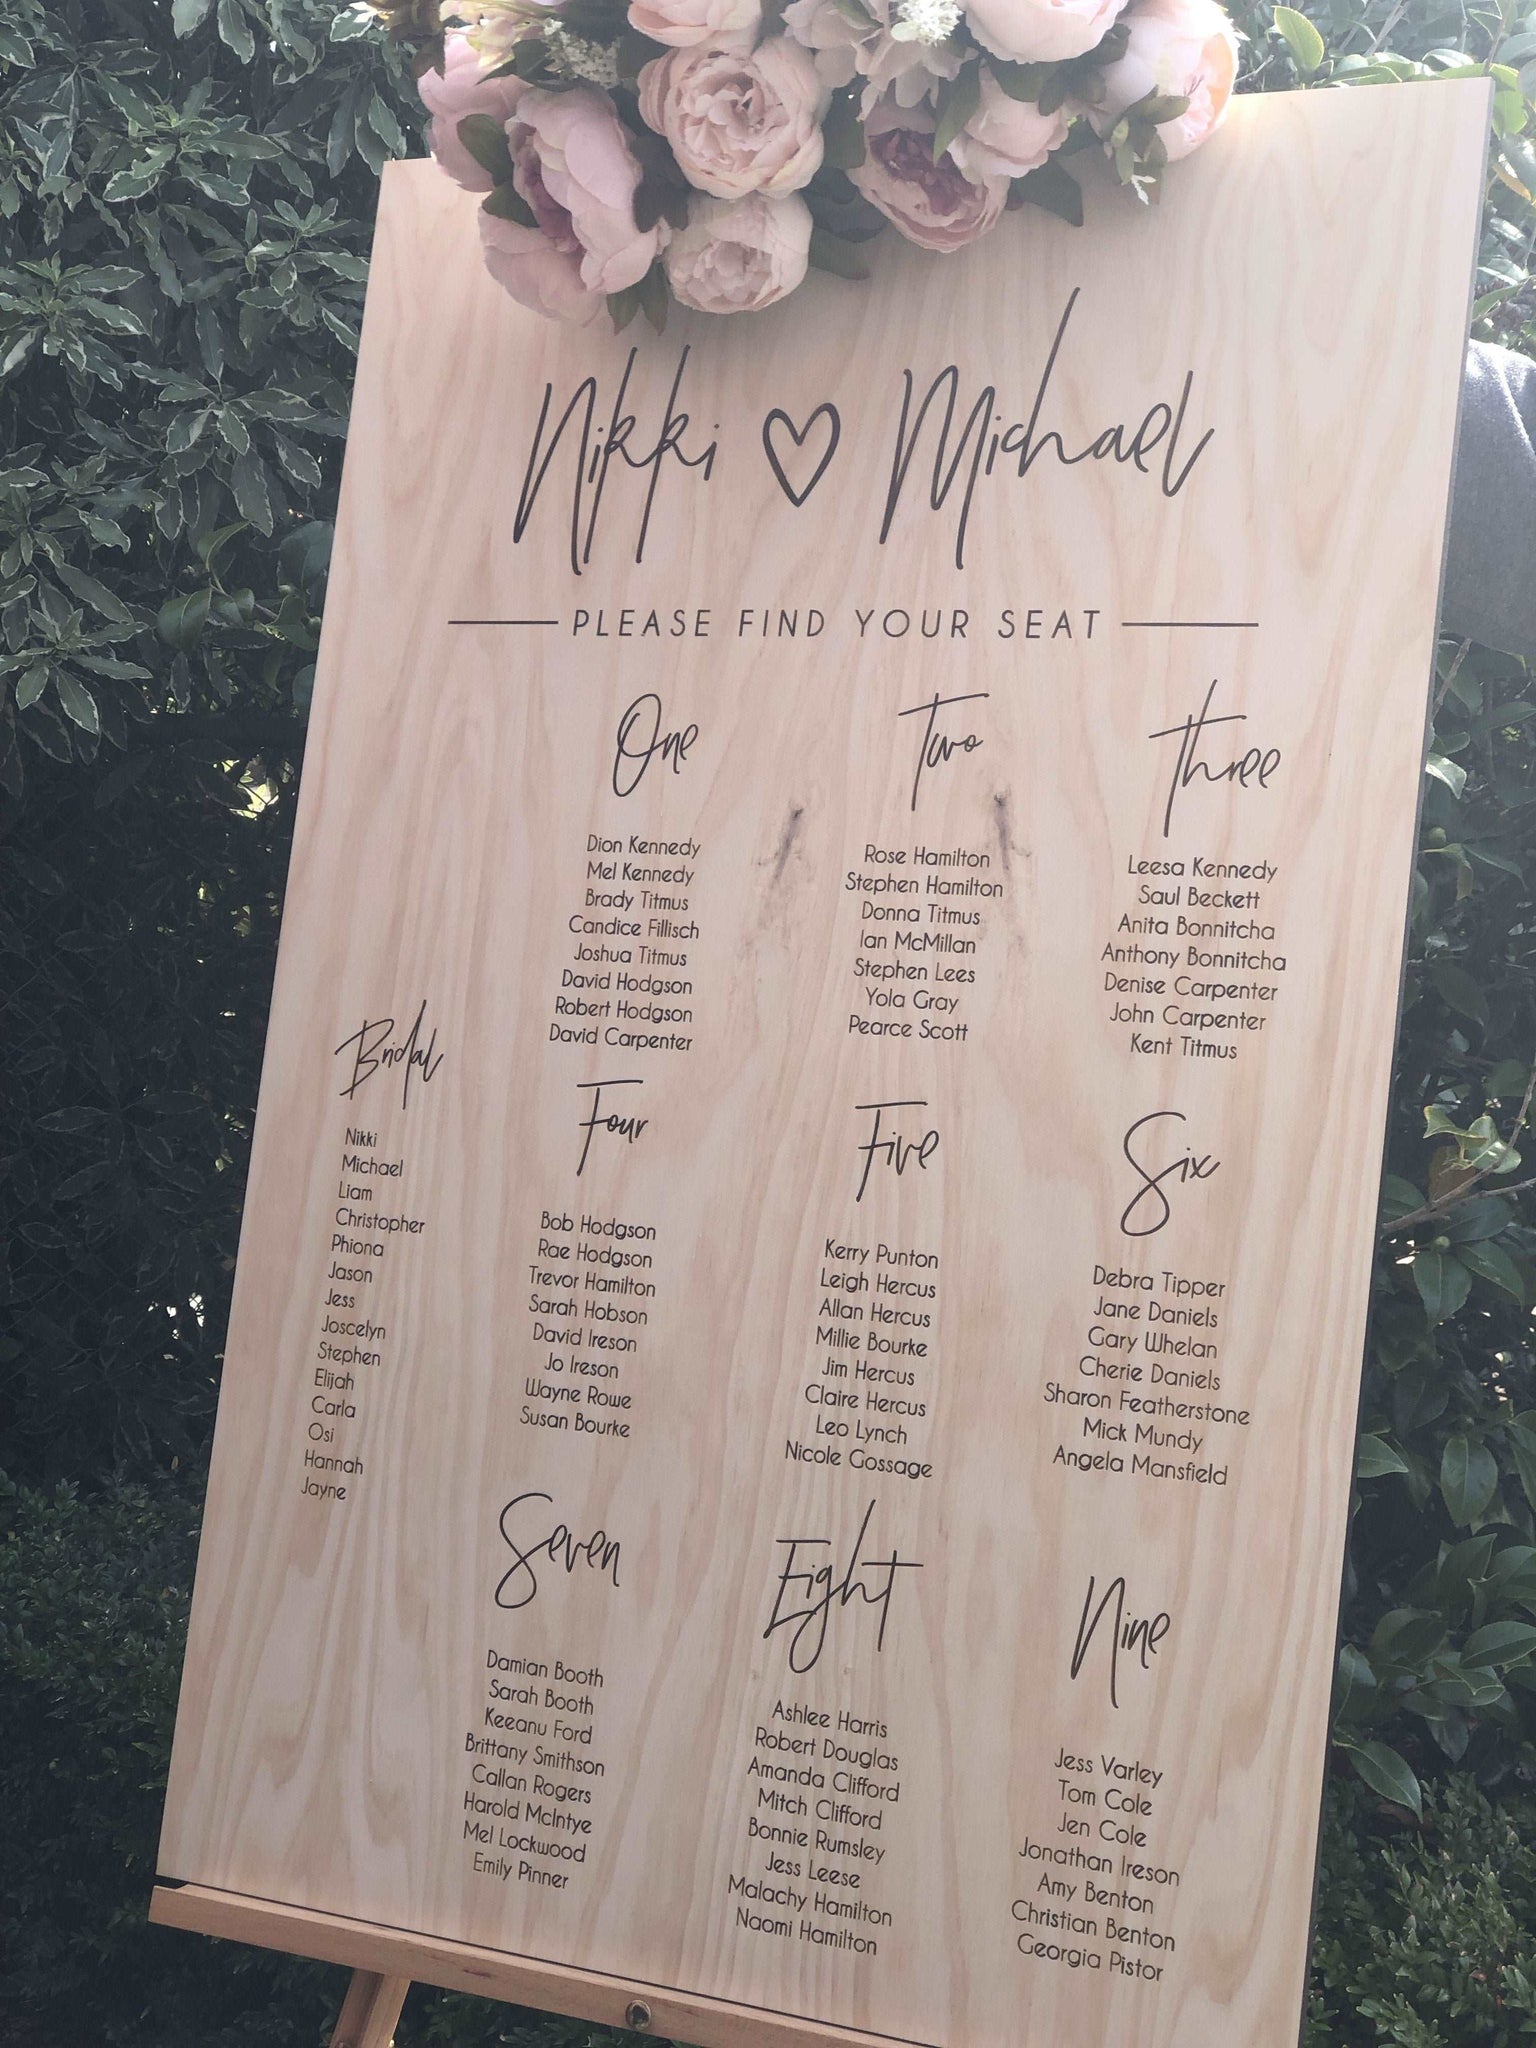 Nikki ♡ Michael
PLEASE FIND YOUR SEAT
One
Dion Kennedy
Mel Kennedy
Brady Titmus
Candice Fillisch
Joshua Titmus
David Hodgson
Robert Hodgson
David Carpenter
Two
Rose Hamilton
Stephen Hamilton
Donna Titmus
Ian McMillan
Stephen Lees
Yola Gray
Pearce Scott
Three
Leesa Kennedy
Saul Beckett
Anita Bonnitcha
Anthony Bonnitcha
Denise Carpenter
John Carpenter
Kent Titmus
Bridal
Nikki
Michael
Liam
Christopher
Phiona
Jason
Jess
Joscelyn
Stephen
Elijah
Carla
Osi
Hannah
Jayne
Four
Bob Hodgson
Rae Hodgson
Trevor Hamilton
Sarah Hobson
David Ireson
Jo Ireson
Wayne Rowe
Susan Bourke
Five
Kerry Punton
Leigh Hercus
Allan Hercus
Millie Bourke
Jim Hercus
Claire Hercus
Leo Lynch
Nicole Gossage
Six
Debra Tipper
Jane Daniels
Gary Whelan
Cherie Daniels
Sharon Featherstone
Mick Mundy
Angela Mansfield
Seven
Damian Booth
Sarah Booth
Keeanu Ford
Brittany Smithson
Callan Rogers
Harold McIntye
Mel Lockwood
Emily Pinner
Eight
Ashlee Harris
Robert Douglas
Amanda Clifford
Mitch Clifford
Bonnie Rumsley
Jess Leese
Malachy Hamilton
Naomi Hamilton
Nine
Jess Varley
Tom Cole
Jen Cole
Jonathan Ireson
Amy Benton
Christian Benton
Georgia Pistor